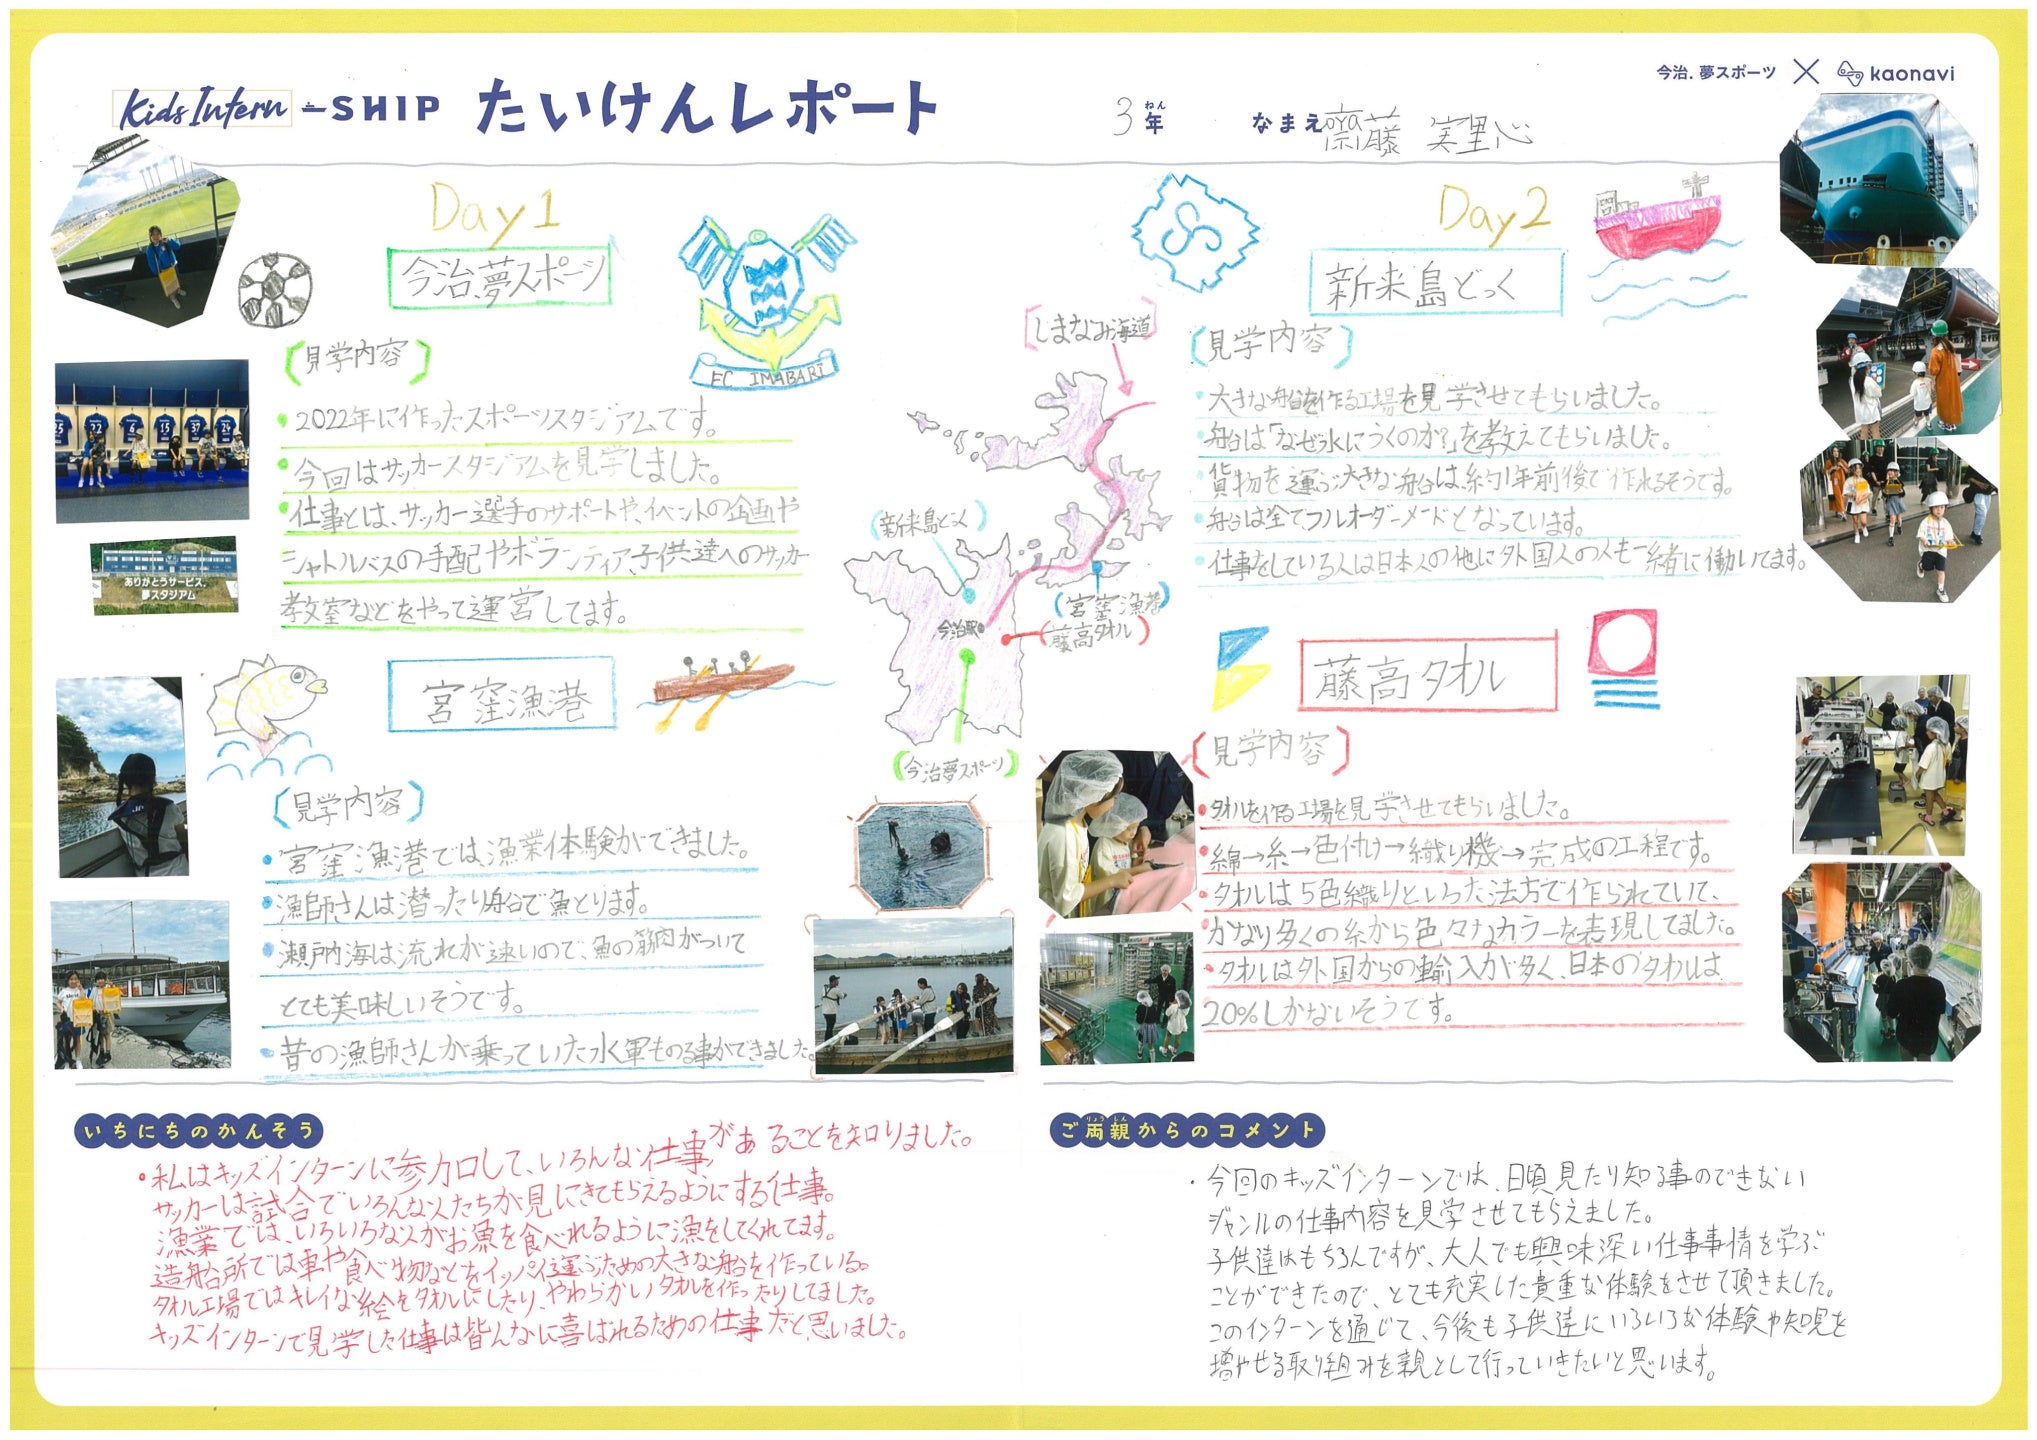 Kids Intern-SHIP たいけんレポート
3年
ねん
なまえ 齋藤 実里心
今治. 夢スポーツ × kaonavi
Day1
今治.夢スポーツ
FC IMABARI
【見学内容】
・2022年に作ったスポーツスタジアムです。
・今回はサッカースタジアムを見学しました。
・仕事とは、サッカー選手のサポートや、イベントの企画や
シャトルバスの手配やボランティア、子供達へのサッカー
教室などをやって運営してます。
25 22 6 15 37 24
ありがとうサービス.
夢スタジアム
宮窪漁港
【見学内容】
・宮窪漁港では漁業体験ができました。
・漁師さんは潜ったり船で魚とります。
・瀬戸内海は流れが速いので、魚の筋肉がついて
とても美味しいそうです。
・昔の漁師さんが乗っていた水軍ものる事ができました。
【しまなみ海道】
(新来島どっく)
(宮窪漁港)
今治駅
(藤高タオル)
(今治夢スポーツ)
Day2
新来島どっく
【見学内容】
・大きな船を作る工場を見学させてもらいました。
・船は「なぜ水にうくのか?」を教えてもらいました。
・貨物を運ぶ大きな船は、約1年前後で作れるそうです。
・船は全てフルオーダーメードとなっています。
・仕事をしている人は日本人の他に外国人の人も一緒に働いてます。
藤高タオル
【見学内容】
・タオルを作る工場を見学させてもらいました。
・綿→糸→色付け→織り機→完成の工程です。
・タオルは5色織りといった法方で作られていて、
かなり多くの糸から色々なカラーを表現してました。
・タオルは外国からの輸入が多く、日本のタオルは
20%しかないそうです。
いちにちのかんそう
・私はキッズインターンに参加して、いろんな仕事があることを知りました。
サッカーは試合でいろんな人たちが見にきてもらえるようにする仕事。
漁業では、いろいろな人がお魚を食べれるように漁をしてくれてます。
造船所では車や食べ物などをイッパイ運ぶための大きな船を作っている。
タオル工場ではキレイな絵をタオルにしたり、やわらかいタオルを作ったりしてました。
キッズインターンで見学した仕事は皆んなに喜ばれるための仕事だと思いました。
ご両親からのコメント
りょうしん
・今回のキッズインターンでは、日頃見たり知る事のできない
ジャンルの仕事内容を見学させてもらえました。
子供達はもちろんですが、大人でも興味深い仕事事情を学ぶ
ことができたので、とても充実した貴重な体験をさせて頂きました。
このインターンを通じて、今後も子供達にいろいろな体験や知見を
増やせる取り組みを親として行っていきたいと思います。